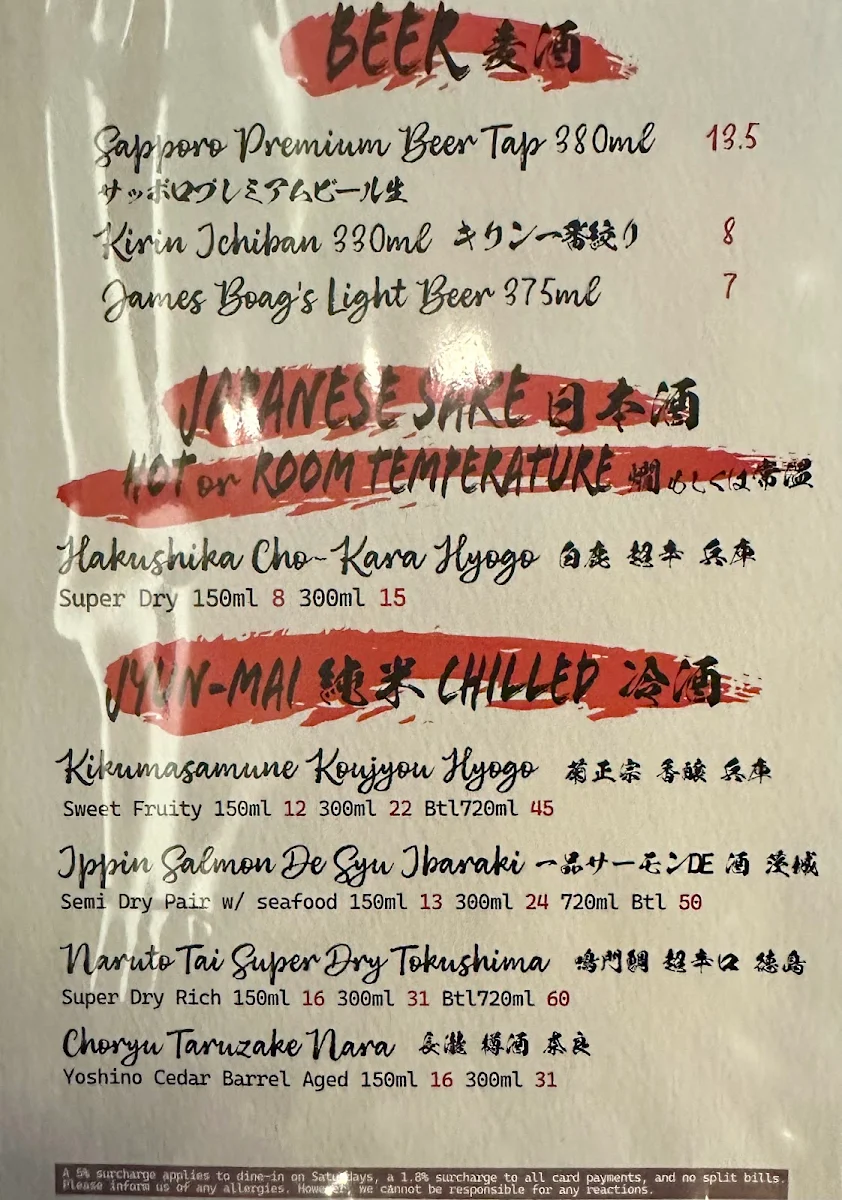 BEER 麦酒
Sapporo Premium Beer Tap 380ml 13.5
サッポロプレミアムビール生
Kirin Ichiban 330ml キリン一番絞り 8
James Boag's Light Beer 375ml 7
JAPANESE SAKE 日本酒
HOT or ROOM TEMPERATURE 燗もしくは常温
Hakushika Cho-Kara Hyogo 白鹿 超辛 兵庫
Super Dry 150ml 8 300ml 15
JYUN-MAI 純米 CHILLED 冷酒
Kikumasamune Koujyou Hyogo 菊正宗 香醸 兵庫
Sweet Fruity 150ml 12 300ml 22 Btl720ml 45
Ippin Salmon De Syu Ibaraki 一品サーモンDE 酒 茨城
Semi Dry Pair w/ seafood 150ml 13 300ml 24 720ml Btl 50
Naruto Tai Super Dry Tokushima 鳴門鯛 超辛口 徳島
Super Dry Rich 150ml 16 300ml 31 Btl720ml 60
Choryu Taruzake Nara 長瀧 樽酒 奈良
Yoshino Cedar Barrel Aged 150ml 16 300ml 31
A 5% surcharge applies to dine-in on Saturdays, a 1.8% surcharge to all card payments, and no split bills.
Please inform us of any allergies. However, we cannot be responsible for any reactions.